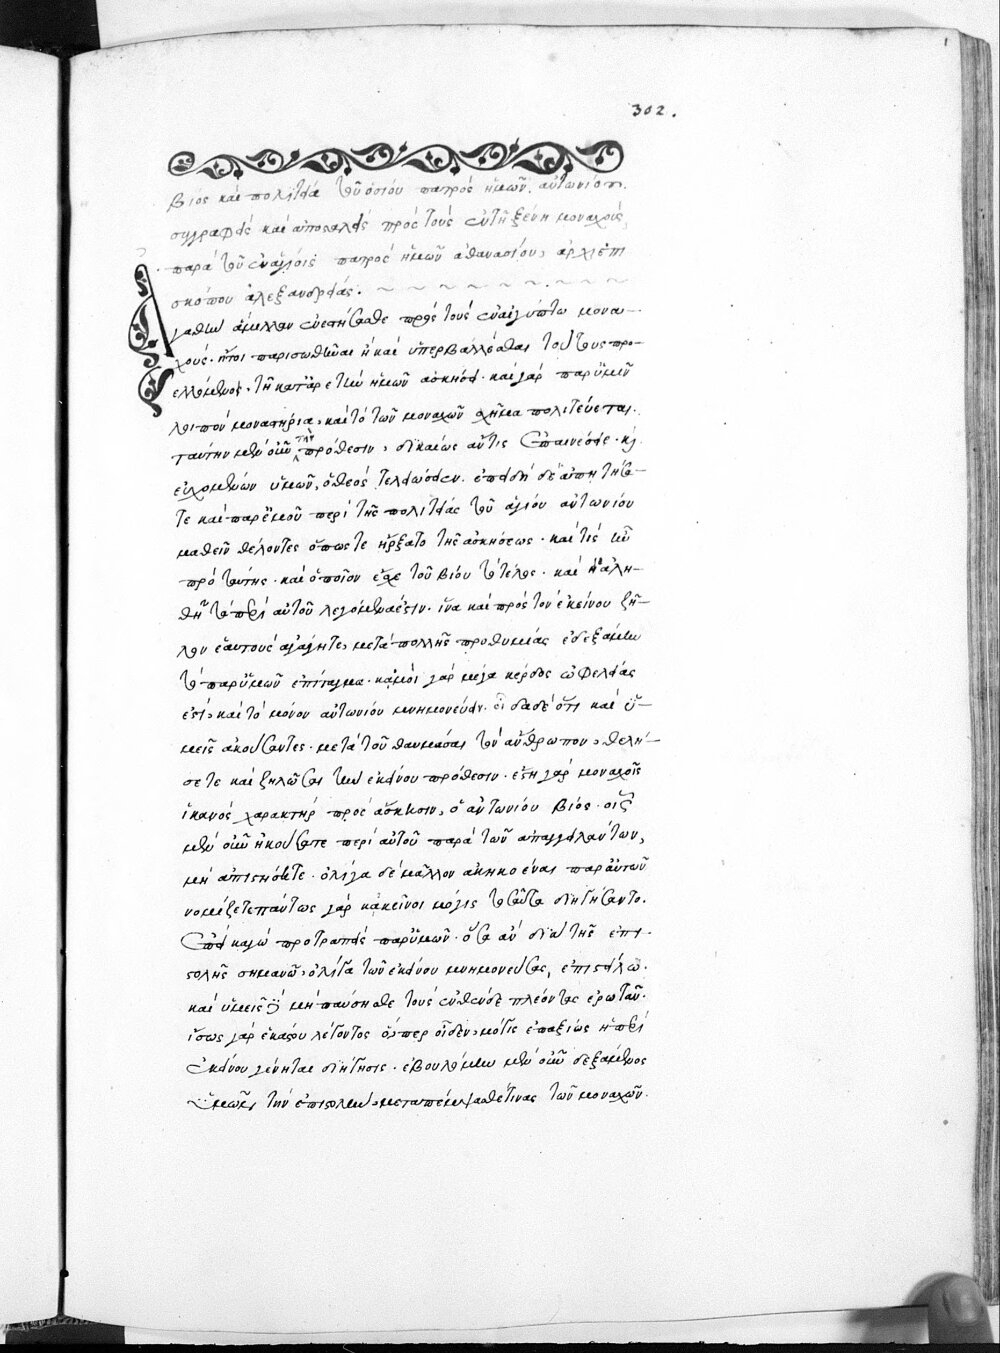 302.
βίος καὶ πολιτεία τοῦ ὁσίου πατρὸς ἡμῶν ἀντωνίου
συγγραφεὶς καὶ ἀποσταλεὶς πρὸς τοὺς ἐν τῇ ξένῃ μοναχοὺς
παρὰ τοῦ ἐν ἁγίοις πατρὸς ἡμῶν ἀθανασίου, ἀρχιεπι
σκόπου ἀλεξανδρείας.
Ἀγαθὴν ἅμιλλαν ἐνεστήσασθε πρὸς τοὺς ἐν αἰγύπτω μονα-
χούς. ἤτοι παρισωθῆναι ἢ καὶ ὑπερβαλλέσθαι τούτους προ-
ελλόμενος, τῆ κατ' ἀρετὴν ἡμῶν ἀσκήσει. καὶ γὰρ παρ' ὑμῖν
λοιπὸν μοναστήρια, καὶ τὸ τῶν μοναχῶν σχῆμα πολιτεύεται.
ταύτην μὲν οὖν τὴν πρόθεσιν, δικαίως ἄν τις ἐπαινέσειε. κ
εὐχομένων ὑμῶν, ὁ θεὸς τελειώσειεν. ἐπειδὴ δὲ ἀπῃτήσα-
τε καὶ παρ' ἐμοῦ περὶ τῆς πολιτείας τοῦ ἁγίου ἀντωνίου
μαθεῖν θέλοντες ὅπως τε ἤρξατο τῆς ἀσκήσεως. καὶ τίς ἦν
πρὸ ταύτης. καὶ ὁποῖον ἔσχε τοῦ βίου τὸ τέλος. καὶ εἰ ἀλη-
θῆ τὰ περὶ αὐτοῦ λεγόμενά ἐστιν. ἵνα καὶ πρὸς τὸν ἐκείνου ζῆ-
λον ἑαυτοὺς ἀγάγητε, μετὰ πολλῆς προθυμίας ἐδεξάμην
τὸ παρ' ὑμῶν ἐπίταγμα. κἀμοὶ γὰρ μέγα κέρδος ὠφελείας
ἐστὶ, καὶ τὸ μόνον ἀντωνίου μνημονεύειν. οἶδα δὲ ὅτι καὶ ὑ-
μεῖς ἀκούσαντες. μετὰ τοῦ θαυμάσαι τὸν ἄνθρωπον, θελή-
σετε καὶ ζηλῶσαι τὴν ἐκείνου πρόθεσιν. ἔστι γὰρ μοναχοῖς
ἱκανὸς χαρακτὴρ πρὸς ἄσκησιν, ὁ ἀντωνίου βίος. οἷς
μὲν οὖν ἠκούσατε περὶ αὐτοῦ παρὰ τῶν ἀπαγγειλάντων,
μὴ ἀπιστήσητε. ὀλίγα δὲ μᾶλλον ἀκηκοέναι παρ' αὐτῶν
νομίζετε πάντως γὰρ κἀκεῖνοι μόλις τοσαῦτα διηγήσαντο.
ἐπεὶ καγὼ προτραπεὶς παρ' ὑμῶν. ὅσα ἂν διὰ τῆς ἐπι-
στολῆς σημανῶ, ὀλίγα τῶν ἐκείνου μνημονεύσας, ἐπιστείλω.
καὶ ὑμεῖς δὲ μὴ παύσησθε τοὺς ἐνθένδε πλέοντας ἐρωτᾶν.
ἴσως γὰρ ἑκάστου λέγοντος ὅπερ οἶδεν, μόγις ἐπαξίως ἡ περὶ
ἐκείνου γένηται διήγησις. ἐβουλόμην μὲν οὖν δεξάμενος
ὑμῶν τὴν ἐπιστολὴν, μεταπέμψασθαί τινας τῶν μοναχῶν.